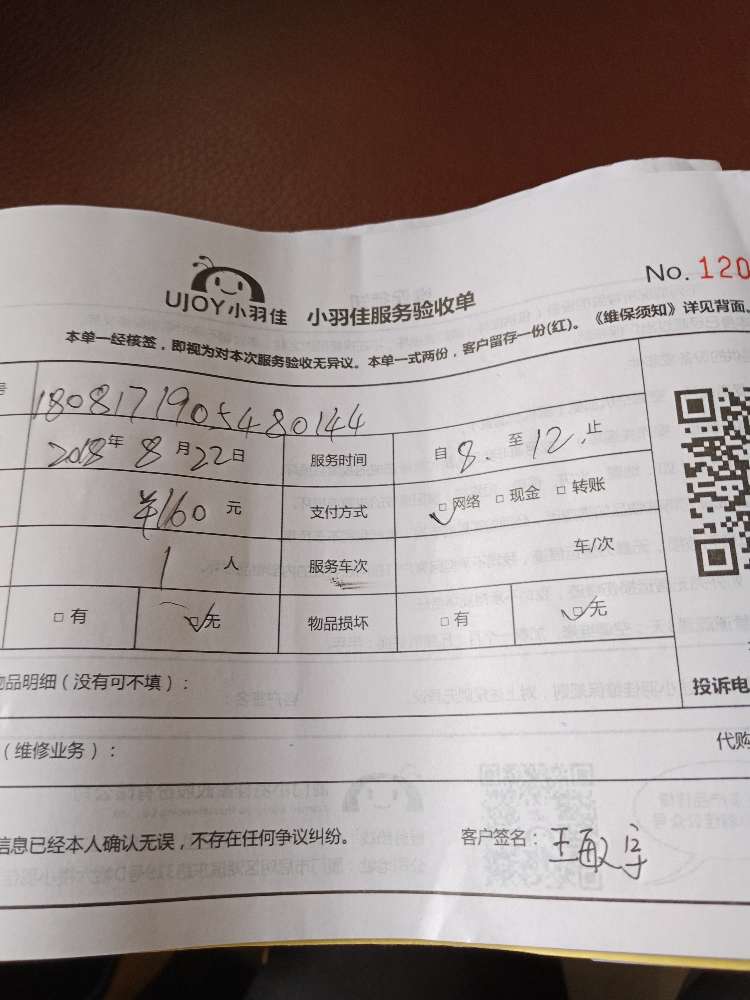 UJOY小羽佳 小羽佳服务验收单 No. 120
本单一经核签，即视为对本次服务验收无异议。本单一式两份，客户留存一份(红)。《维保须知》详见背面。
号 1808171905480144
2018年8月22日 服务时间 自8.至12.止
¥160元 支付方式 ☑网络 □现金 □转账
1人 服务车次 车/次
□有 ☑无 物品损坏 □有 ☑无
物品明细（没有可不填）： 投诉电
（维修业务）： 代购
信息已经本人确认无误，不存在任何争议纠纷。 客户签名：王